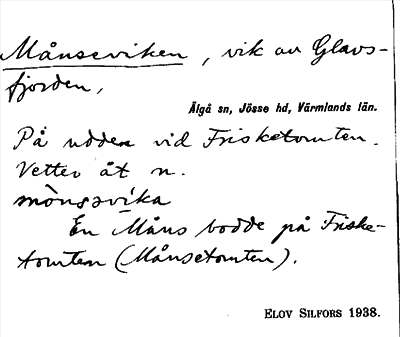 Månseviken, vik av Glavs-
fjorden,
Älgå sn, Jösse hd, Värmlands län.
På udden vid Frisketomten.
Vetter åt n.
mònsəvika
En Måns bodde på Friske-
tomten (Månsetomten).
ELOV SILFORS 1938.